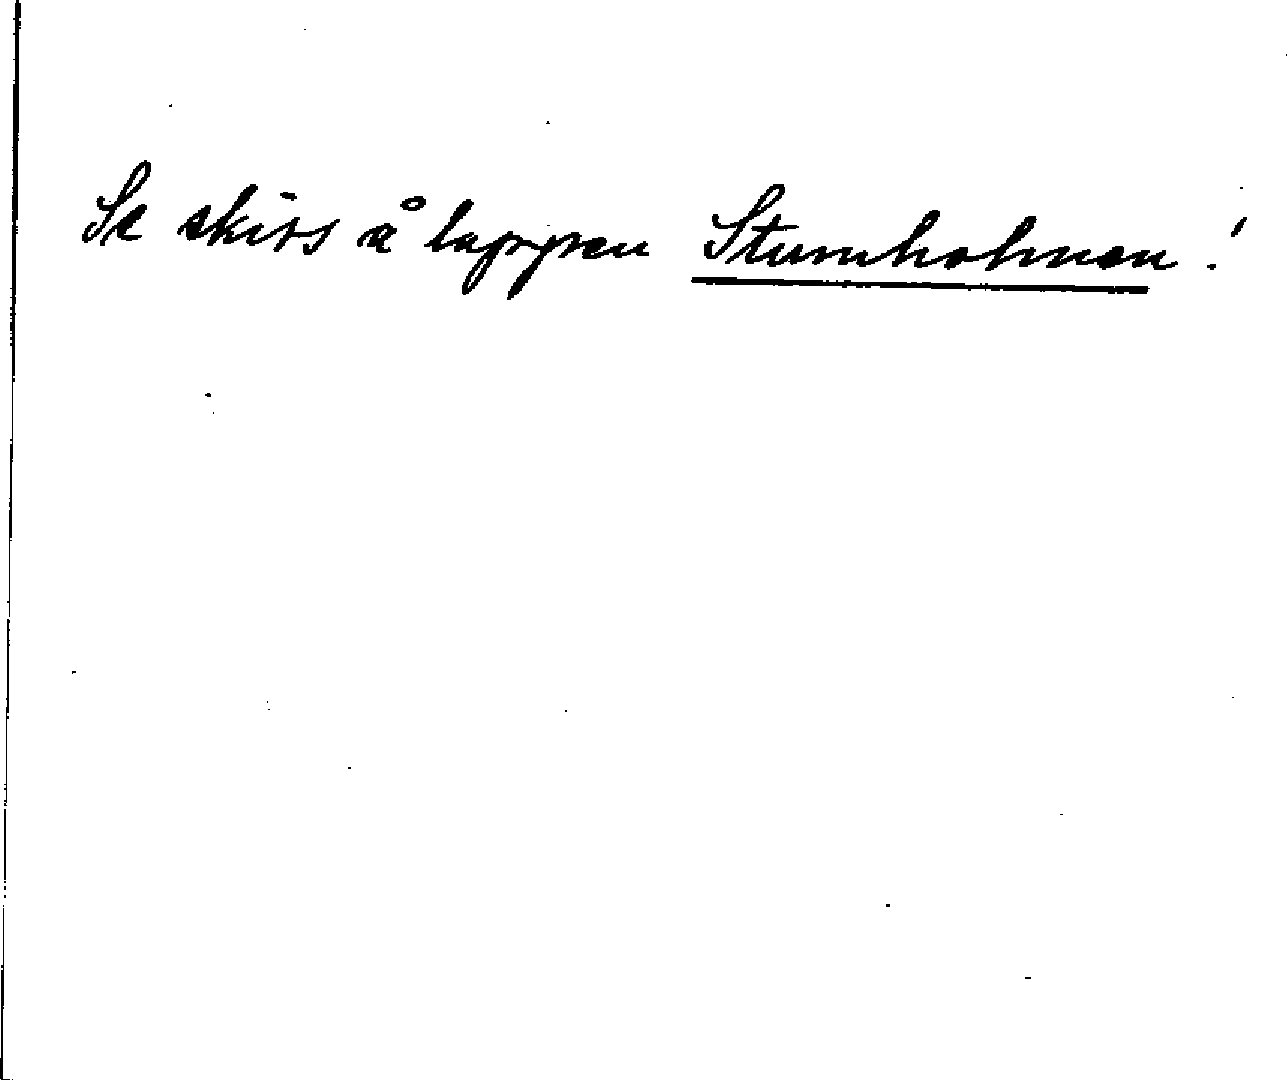 Se skiss å lappen Stumholmen!